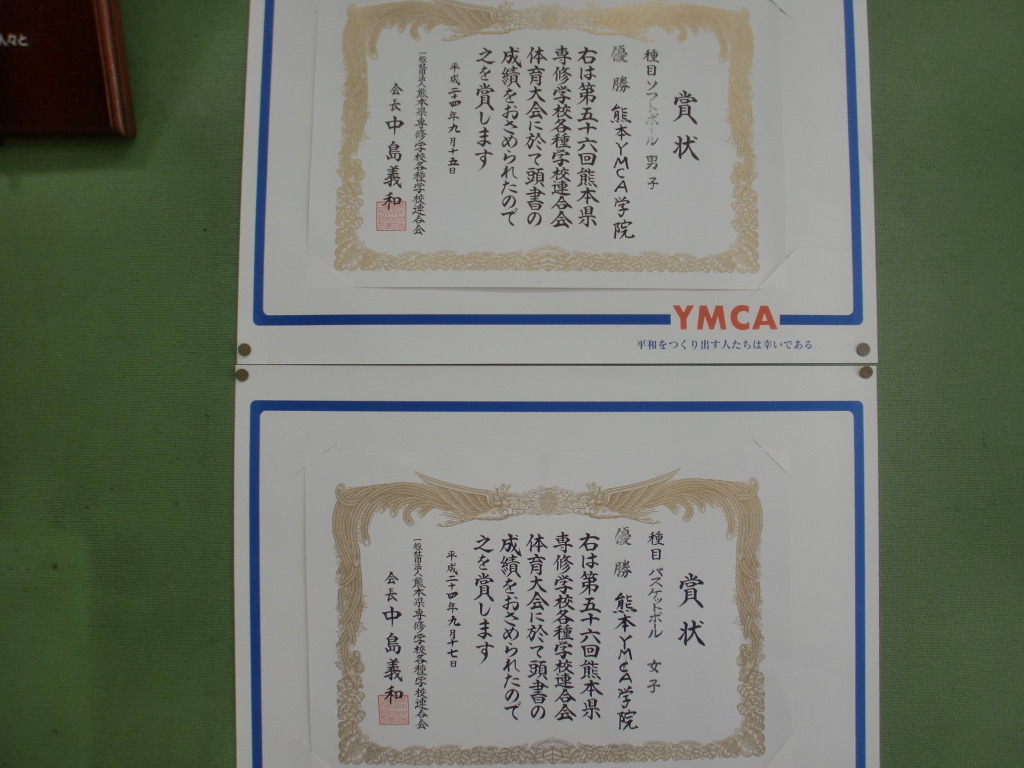 人々と
賞状
種目 ソフトボール 男子
優勝 熊本YMCA学院
右は第五十六回熊本県
専修学校各種学校連合会
体育大会に於て頭書の
成績をおさめられたので
之を賞します
平成二十四年九月十五日
一般社団法人熊本県専修学校各種学校連合会
会長 中島義和
YMCA
平和をつくり出す人たちは幸いである
賞状
種目 バスケットボール 女子
優勝 熊本YMCA学院
右は第五十六回熊本県
専修学校各種学校連合会
体育大会に於て頭書の
成績をおさめられたので
之を賞します
平成二十四年九月十七日
一般社団法人熊本県専修学校各種学校連合会
会長 中島義和